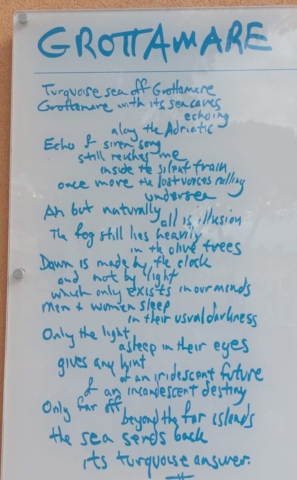 GROTTAMARE
Turquoise sea off Grottamare
Grottamare with its sea caves
echoing
along the Adriatic
Echo of siren song
still reaches me
inside the silent train
once more the lost voices calling
undersea
Ah but naturally all is illusion
The fog still lies heavily
in the olive trees
Dawn is made by the clock
and not by light
which only exists in our minds
Men & women sleep
in their usual darkness
Only the light
asleep in their eyes
gives any hint
of an iridescent future
of an incandescent destiny
Only far off
beyond the far islands
the sea sends back
its turquoise answer.